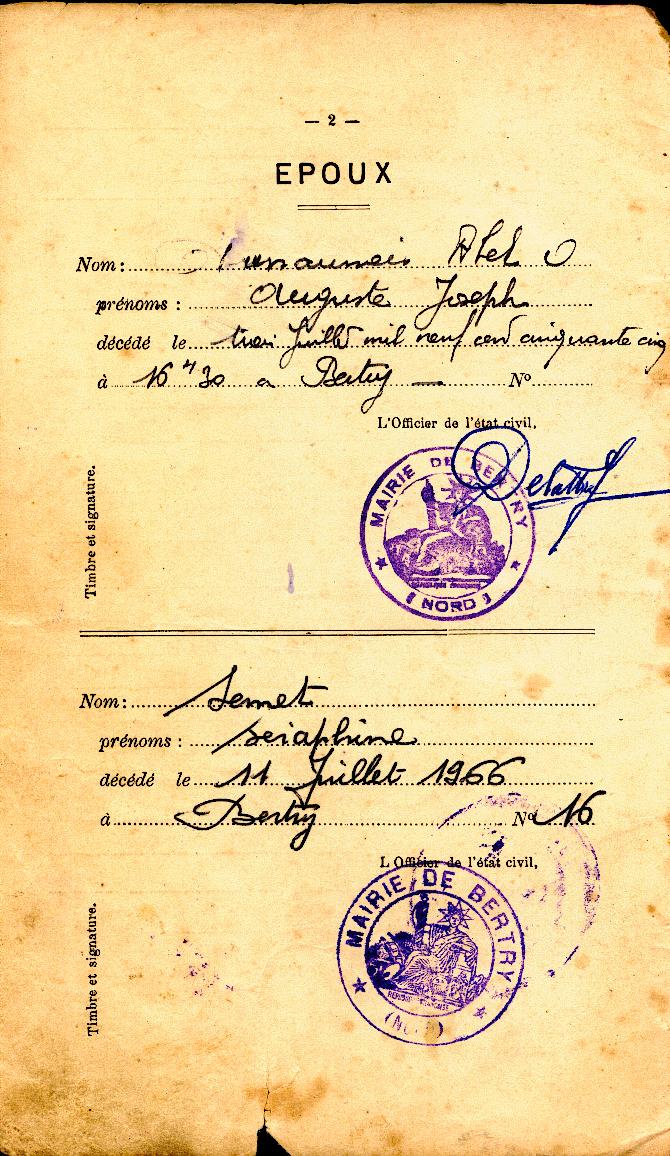 — 2 —
EPOUX
Nom : Abel
prénoms : Auguste Joseph
décédé le trois juillet mil neuf cent cinquante cinq
à 16 H 30 a Bertry — No
L'Officier de l'état civil,
MAIRIE DE BERTRY
(NORD)
Timbre et signature.
Nom : Semet
prénoms : Séraphine
décédé le 11 Juillet 1966
à Bertry No 16
L Officier de l'état civil,
MAIRIE DE BERTRY
Timbre et signature.